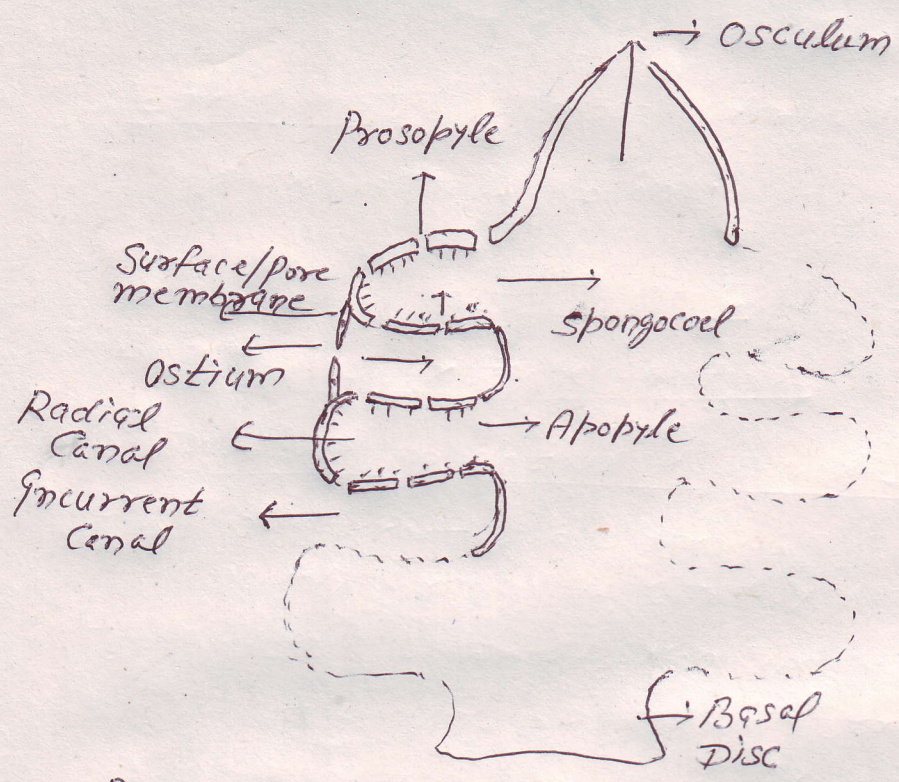 Osculum
Prosopyle
Surface/pore
membrane
Spongocoel
Ostium
Radial
Canal
Apopyle
Incurrent
Canal
Basal
Disc